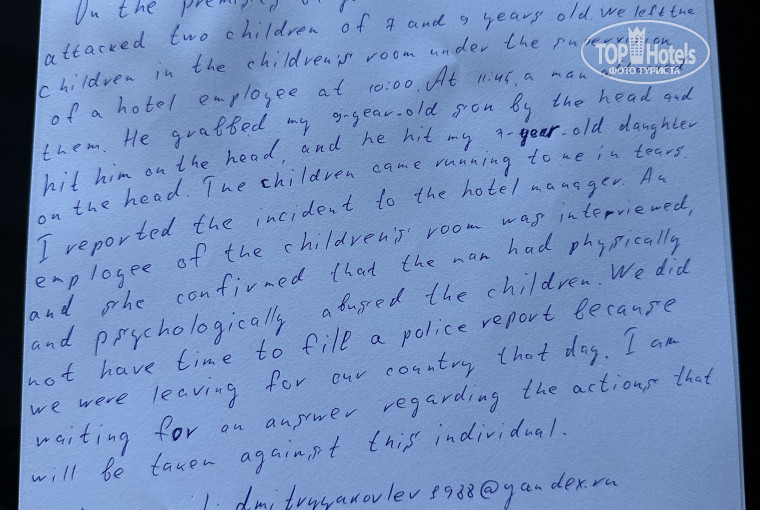 On the premises of
attacked two children of 7 and 9 years old. We left the
children in the children's room under the supervision
of a hotel employee at 10:00. At 11:45, a man
them. He grabbed my 9-year-old son by the head and
hit him on the head, and he hit my 7-year-old daughter
on the head. The children came running to me in tears.
I reported the incident to the hotel manager. An
employee of the children's room was interviewed,
and she confirmed that the man had physically
and psychologically abused the children. We did
not have time to fill a police report because
we were leaving for our country that day. I am
waiting for an answer regarding the actions that
will be taken against this individual.
dmitryyakovlev1988@yandex.ru
TOP Hotels
ФОТО ТУРИСТА